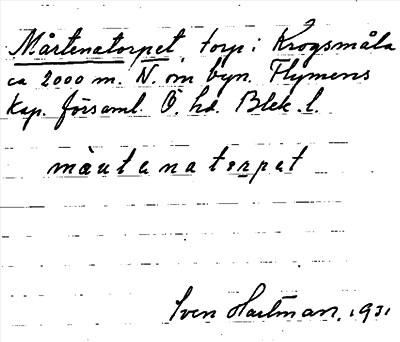 Mårtenatorpet, torp i Krogsmåla
ca 2000 m. N. om byn. Flymens
Kap. församl. Ö. hd. Blek. l.
måutenatorpet
Sven Hartman, 1931